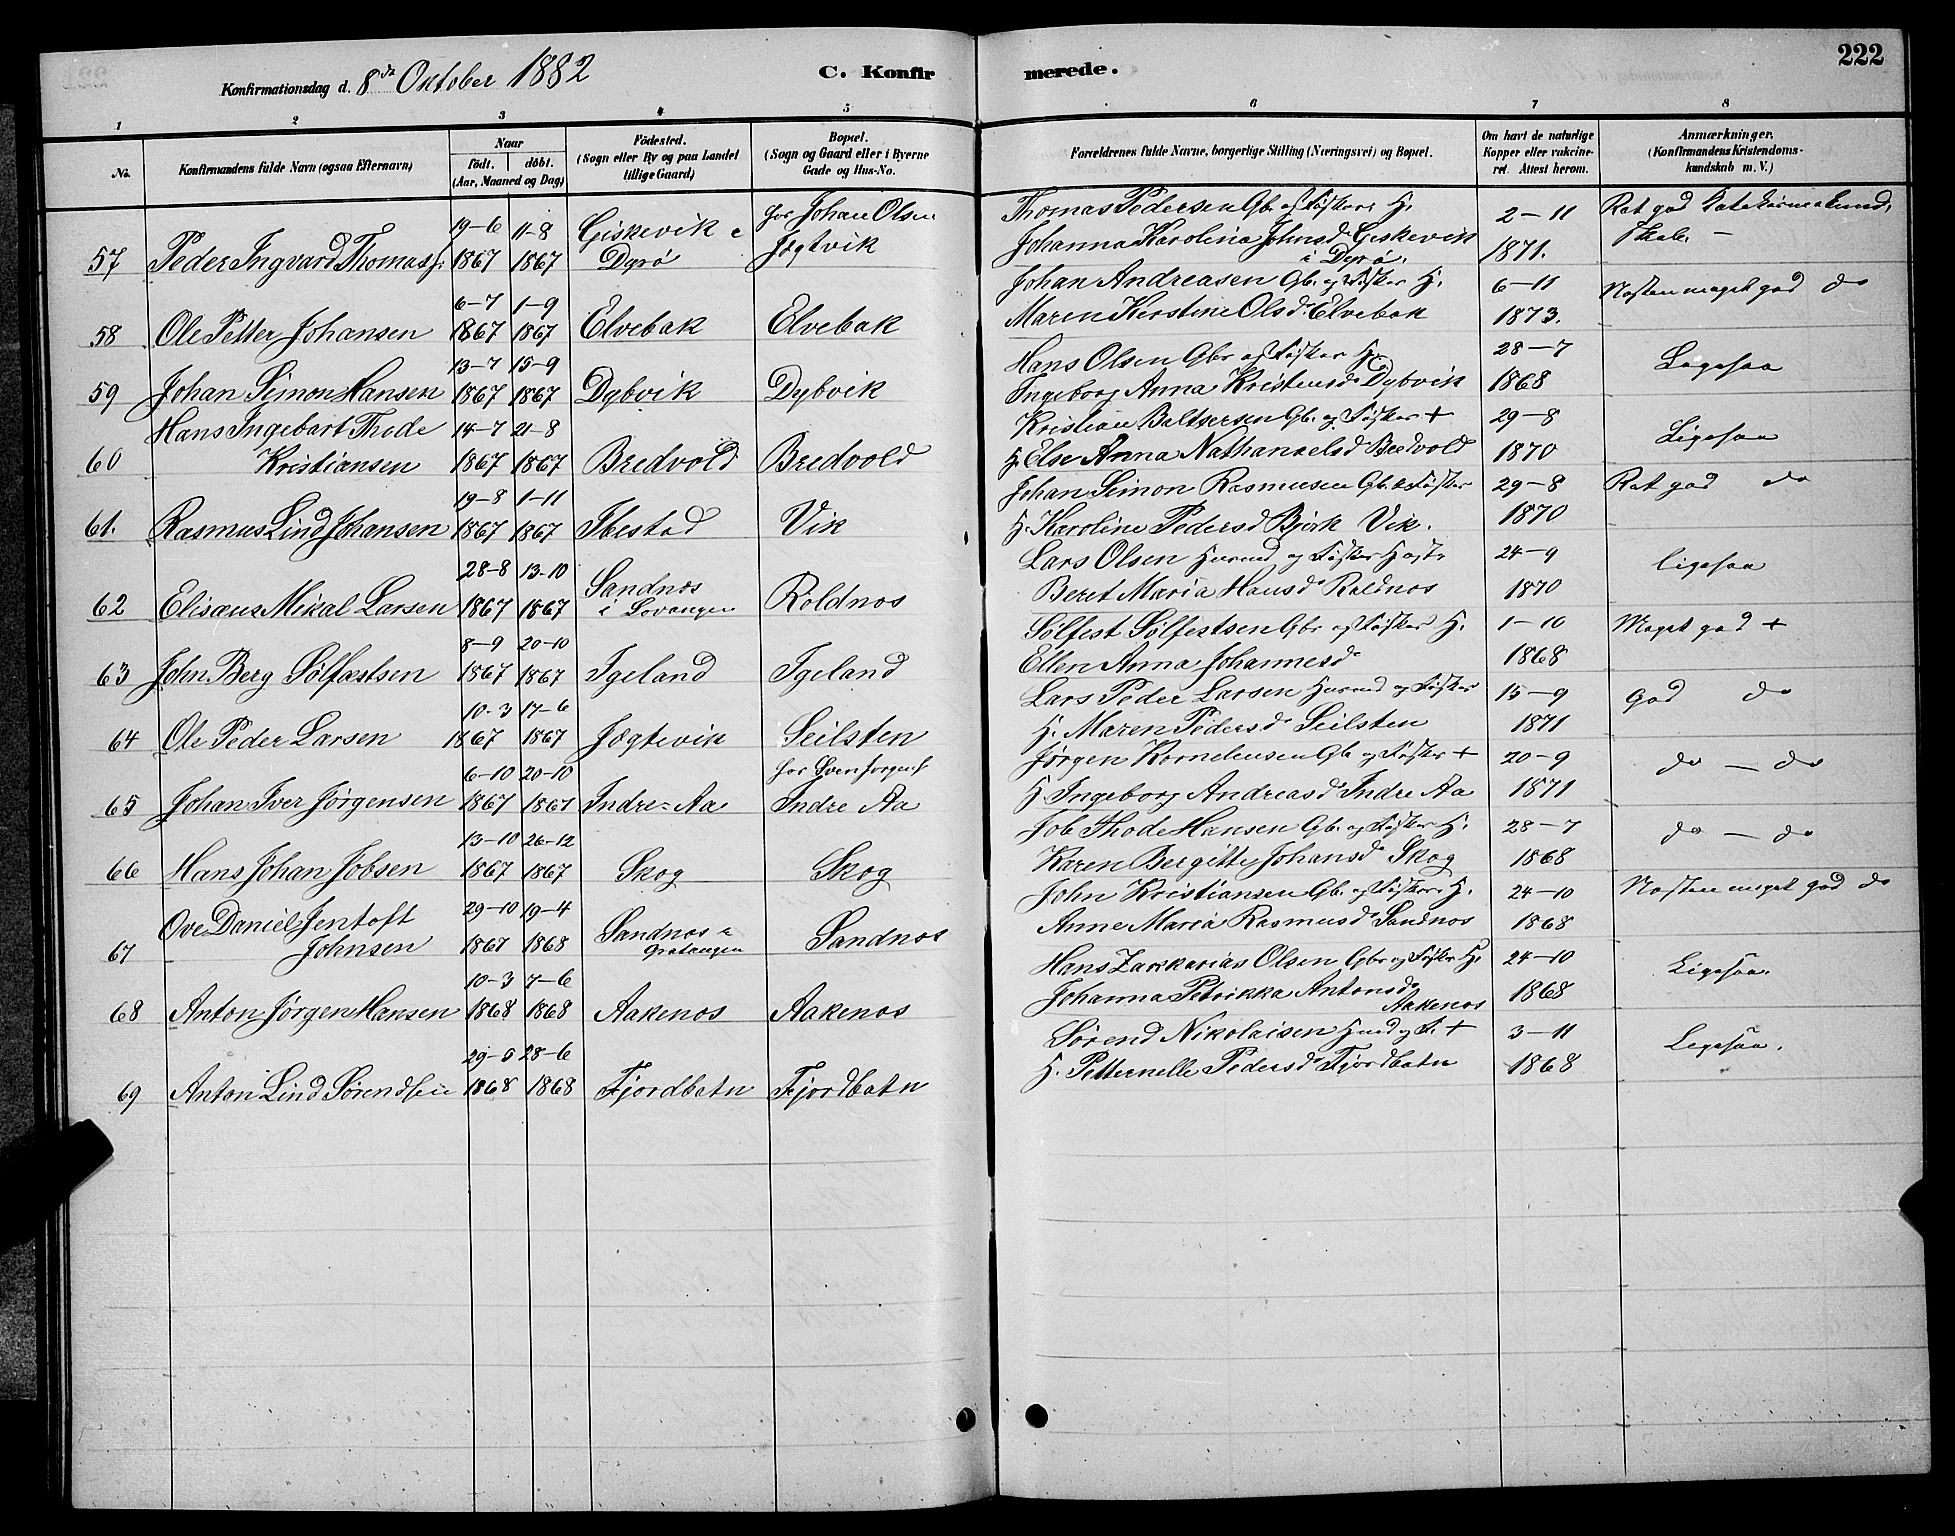 Konfirmationsdag d. 8de Oktober 1882
C. Konfirmerede.
222
1 2 3 4 5 6 7 8
No.
Konfirmandens fulde Navn (ogsaa Efternavn)
Naar
födt. döbt.
(Aar, Maaned og Dag)
Födested.
(Sogn eller By og paa Landet
tillige Gaard)
Bopæl.
(Sogn og Gaard eller i Byerne
Gade og Hus-No.
Forældrenes fulde Navne, borgerlige Stilling (Næringsvei) og Bopæl.
Om havt de naturlige
Kopper eller vakcine-
ret. Attest herom.
Anmærkninger.
(Konfirmandens Kristendoms-
kundskab m. V.)
19-6 11-8 Giskevik i for Johan Olsen Thomas Pedersen Gbr. og Fisker H. 2-11 Ret god
57 Peder Ingvard Thomass. 1867 1867 Dyrø Jægtvik Johanna Karolina Johnsd. Giskevik i Dyrø. 1871. Skab. -
6-7 1-9 Johan Andreasen Gb. og Fisker H. 6-11 Næsten meget god do
58 Ole Petter Johansen 1867 1867 Elvebak Elvebak Maren Kirstine Olsd. Elvebak 1873.
13-7 15-9 Hans Olsen Gbr og Fisker H. 28-7 Ligesaa
59 Johan Simon Hansen 1867 1867 Dybvik Dybvik Ingeborg Anna Kristensd. Dybvik 1868
Hans Ingebart Thode 14-7 21-8 Kristian Baltsersen Gb. og Fisker + 29-8 Ligesaa
60 Kristiansen 1867 1867 Bredvold Bredvold H. Else Anna Nathanaelsd Bredvold 1870
19-8 1-11 Johan Simon Rasmusen Gb. & Fisker 29-8 Ret god do
61. Rasmus Lind Johansen 1867 1867 Ibestad Vik H. Karoline Pedersd Bjørk Vik. 1870
28-8 13-10 Sandnes Lars Olsen Husmd og Fisker 24-9 Ligesaa
62 Elisæus Mikal Larsen 1867 1867 i Lovangen Roldnos Beret Maria Hansd Roldnos 1870
8-9 20-10 Sølfest Sølfestsen Gbr og Fisker H. 1-10 Meget god +
63 John Berg Sølfastsen 1867 1867 Igeland Igeland Ellen Anna Johannesd 1868
10-3 17-6 Lars Peder Larsen Husmd og Fisker 15-9 God do
64 Ole Peder Larsen 1867 1867 Jægtevik Seilsten H. Maren Pedersd Seilsten 1871
6-10 20-10 for Sven Jørgens Jørgen Kornelinsen Gb og Fisker + 20-9 do - do
65 Johan Iver Jørgensen 1867 1867 Indre-Aa Indre Aa H. Ingeborg Andreasd Indre Aa 1871
13-10 26-12 Job Thode Hansen Gb. og Fisker H. 28-7 do - do
66 Hans Johan Jobsen 1867 1867 Skog Skog Karen Bergitte Johansd Skog 1868
Ove Daniel Jentoft 29-10 19-4 Sandnos i John Kristiansen Gb. og Fisker H. 24-10 Næsten meget god do
67 Johnsen 1867 1868 Gratangen Sandnos Anne Maria Rasmusd Sandnos 1868
10-3 7-6 Hans Zakkarias Olsen Gbr og Fisker H. 24-10 Ligesaa.
68 Anton Jørgen Hansen 1868 1868 Aakenos Aakenos Johanna Petrikka Antonsd Aakenos 1868
29-5 28-6 Sørend Nikolaisen Husmd og F. + 3-11 Ligesaa.
69 Anton Lind Sørendsen 1868 1868 Fjordbotn Fjordbotn H. Petternelle Pedersd Fjordbotn 1868